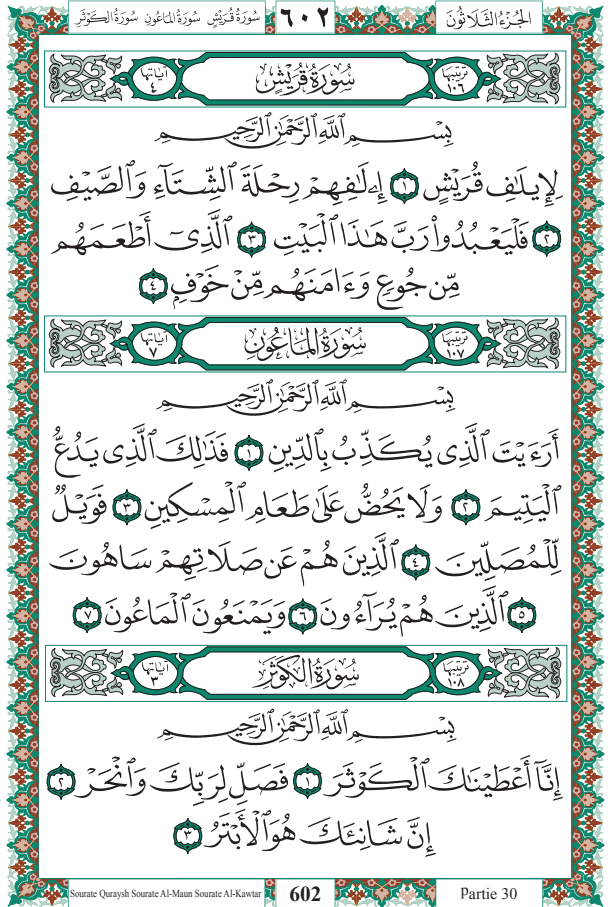 الجُزْءُ الثَّلَاثُونَ ٦٠٢ سُورَةُ قُرَيْشٍ سُورَةُ المَاعُونِ سُورَةُ الكَوْثَرِ
تَرْتِيبُهَا ١٠٦ سُورَةُ قُرَيْشٍ آيَاتُهَا ٤
بِسْمِ ٱللَّهِ ٱلرَّحْمَٰنِ ٱلرَّحِيمِ
لِإِيلَٰفِ قُرَيْشٍ ١ إِۦلَٰفِهِمْ رِحْلَةَ ٱلشِّتَآءِ وَٱلصَّيْفِ
٢ فَلْيَعْبُدُوا۟ رَبَّ هَٰذَا ٱلْبَيْتِ ٣ ٱلَّذِىٓ أَطْعَمَهُم
مِّن جُوعٍ وَءَامَنَهُم مِّنْ خَوْفٍ ٤
تَرْتِيبُهَا ١٠٧ سُورَةُ المَاعُونِ آيَاتُهَا ٧
بِسْمِ ٱللَّهِ ٱلرَّحْمَٰنِ ٱلرَّحِيمِ
أَرَءَيْتَ ٱلَّذِى يُكَذِّبُ بِٱلدِّينِ ١ فَذَٰلِكَ ٱلَّذِى يَدُعُّ
ٱلْيَتِيمَ ٢ وَلَا يَحُضُّ عَلَىٰ طَعَامِ ٱلْمِسْكِينِ ٣ فَوَيْلٌ
لِّلْمُصَلِّينَ ٤ ٱلَّذِينَ هُمْ عَن صَلَاتِهِمْ سَاهُونَ
٥ ٱلَّذِينَ هُمْ يُرَآءُونَ ٦ وَيَمْنَعُونَ ٱلْمَاعُونَ ٧
تَرْتِيبُهَا ١٠٨ سُورَةُ الكَوْثَرِ آيَاتُهَا ٣
بِسْمِ ٱللَّهِ ٱلرَّحْمَٰنِ ٱلرَّحِيمِ
إِنَّآ أَعْطَيْنَٰكَ ٱلْكَوْثَرَ ١ فَصَلِّ لِرَبِّكَ وَٱنْحَرْ ٢
إِنَّ شَانِئَكَ هُوَ ٱلْأَبْتَرُ ٣
Sourate Quraysh Sourate Al-Maun Sourate Al-Kawtar 602 Partie 30